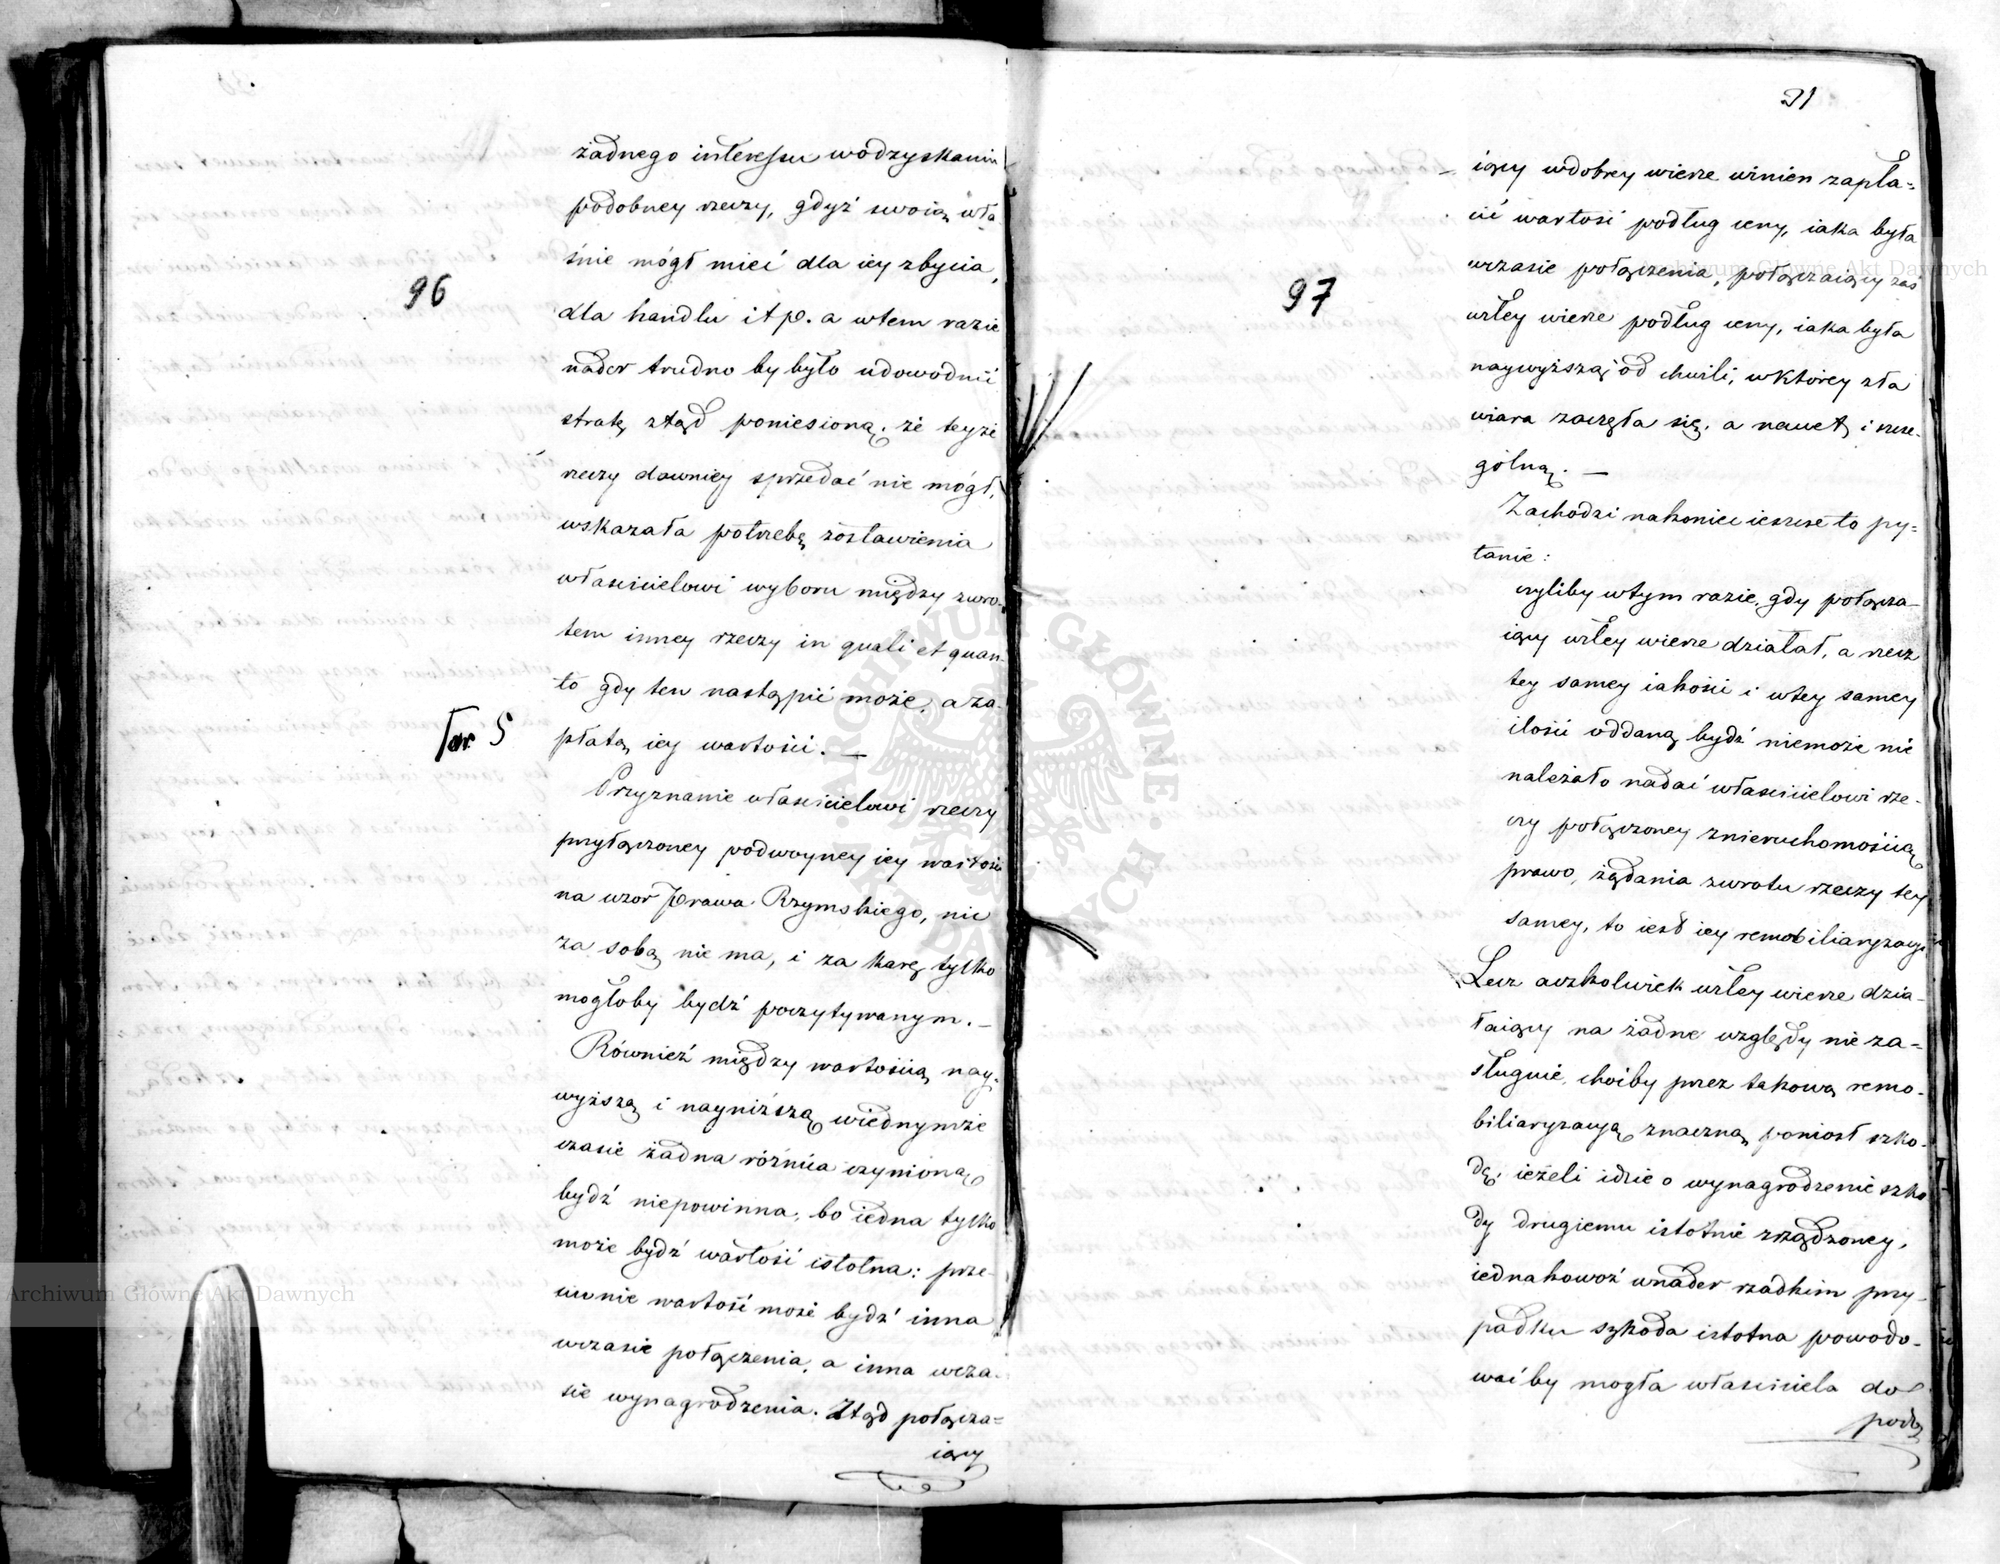 96
Tar 5
żadnego interessu w odzyskaniu
podobney rzeczy, gdyż swoią wła-
śnie mógł mieć dla iey zbycia,
dla handlu itp. a w tem razie
nader trudno by było udowodnić
stratę ztąd poniesioną. że teyże
rzeczy dawniey sprzedać nie mógł,
wskazała potrzebę zostawienia
właścicielowi wyboru między zwro-
tem inney rzeczy in quali et quan-
to gdy ten nastąpić może, a za-
płatą iey wartości. —
Przyznanie właścicielowi rzeczy
przyłączoney podwoyney iey wartości
na wzor Prawa Rzymskiego, nic
za sobą nie ma, i za karę tylko
mogłoby bydź poczytywanym. —
Również między wartością nay-
wyższą i nayniższą w iednymże
czasie żadna różnica czynioną
bydź niepowinna, bo iedna tylko
może bydź wartość istotna: prze-
ciwnie wartość może bydź inna
w czasie połączenia, a inna w cza-
sie wynagrodzenia. Ztąd połącza=
iący
91
97
iący w dobrey wierze winien zapła=
cić wartość podług ceny, iaka była
w czasie połączenia, połączaiący zaś
w złey wierze podług ceny, iaka była
naywyższą od chwili, w którey zła
wiara zaczęła się, a nawet i szcze-
gólną. —
Zachodzi nakoniec ieszcze to py=
tanie:
czyliby w tym razie, gdy połącza-
iący w złey wierze działał, a rzecz
tey samey iakości i w tey samey
ilości oddaną bydź niemoże nie
należało nadać właścicielowi rze-
czy połączoney z nieruchomością
prawo, żądania zwrotu rzeczy tey
samey, to iest iey remobiliaryzacyi
Lecz aczkolwiek w złey wierze dzia-
łaiący na żadne względy nie za=
sługuie, choćby przez takową remo-
biliaryzacyą znaczną poniosł szko-
dę, ieżeli idzie o wynagrodzenie szko
dy drugiemu istotnie zrządzoney,
iednakowoż w nader rzadkim przy-
padku szkoda istotna powodo-
wać by mogła właściciela do
podz
Archiwum Główne Akt Dawnych
Archiwum Główne Akt Dawnych
ARCHIWUM GŁÓWNE AKT DAWNYCH